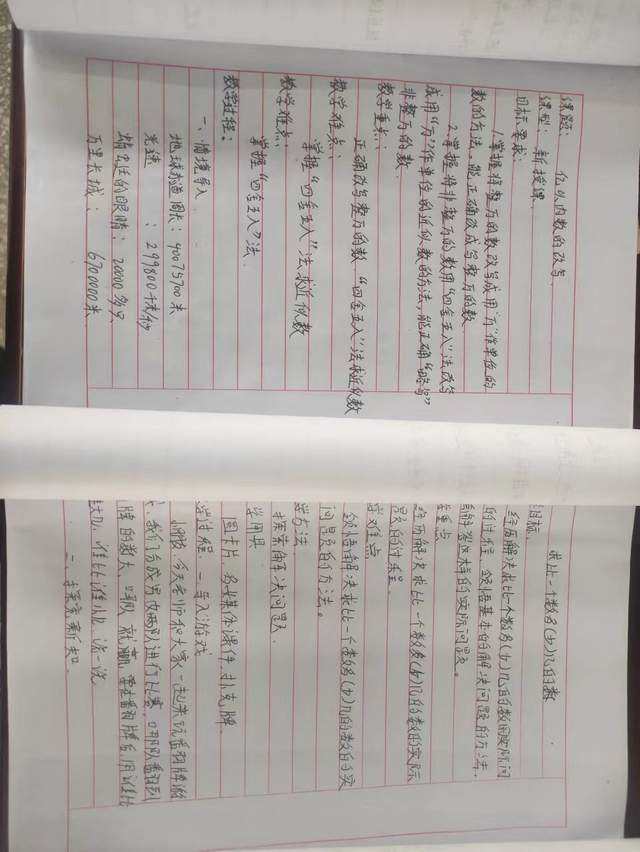 课题： 亿以内数的改写
课型：新授课
目标要求：
1.掌握将整万的数改写成用"万"作单位的
数的方法，能正确改成写整万的数
2.掌握将非整万的数用"四舍五入"法改写
成用"万"作单位的近似数的方法，能正确"略写"
非整万的数
教学重点：
正确改写整万的数 "四舍五入"法求近似数
教学难点：
掌握"四舍五入"法求近似数
教学难点：
掌握"四舍五入"法
教学过程：
一、情境导入
地球赤道周长：40075700米
光速 ：299800千米/秒
蜻蜓的眼睛：20000多只
万里长城：6700000米
求比一个数多(少)几的数
目标：
经历解决求比一个数多(少)几的数的实际问
的过程，领悟基本的解决问题的方法，
解答这样的实际问题。
重点
经历解决求比一个数多(少)几的数的实际
问题的过程
难点
领悟解决求比一个数多(少)几的数的实
问题的方法。
方法
探索解决问题
学用具
图卡片，多媒体课件，扑克牌
学过程：一、导入游戏
今天老师和大家一起来玩番羽牌游
我们分成男女两队进行比赛，哪队番羽到
牌的数大，哪队就赢，要在番羽牌后用谁比
大几，谁比谁小几，说一说
二、探索新知